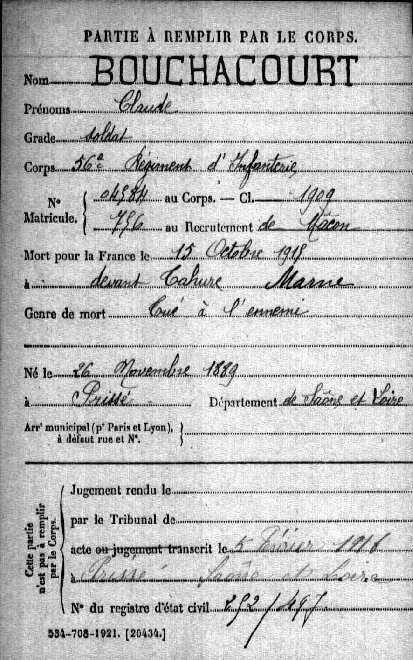 PARTIE À REMPLIR PAR LE CORPS.
Nom BOUCHACOURT
Prénoms Claude
Grade soldat
Corps 56e Régiment d'Infanterie
N° Matricule. { 04584 au Corps. — Cl. 1909
756 au Recrutement de Mâcon
Mort pour la France le 15 Octobre 1915
à devant Tahure Marne
Genre de mort Tué à l'ennemi
Né le 26 Novembre 1889
à Prissé Département de Saône et Loire
Arrt municipal (pr Paris et Lyon),
à défaut rue et N°.
Cette partie n'est pas à remplir par le Corps.
Jugement rendu le
par le Tribunal de
acte ou jugement transcrit le 5 Février 1916
à Prissé Saône et Loire
N° du registre d'état civil 292/497
534-708-1921. [20434.]